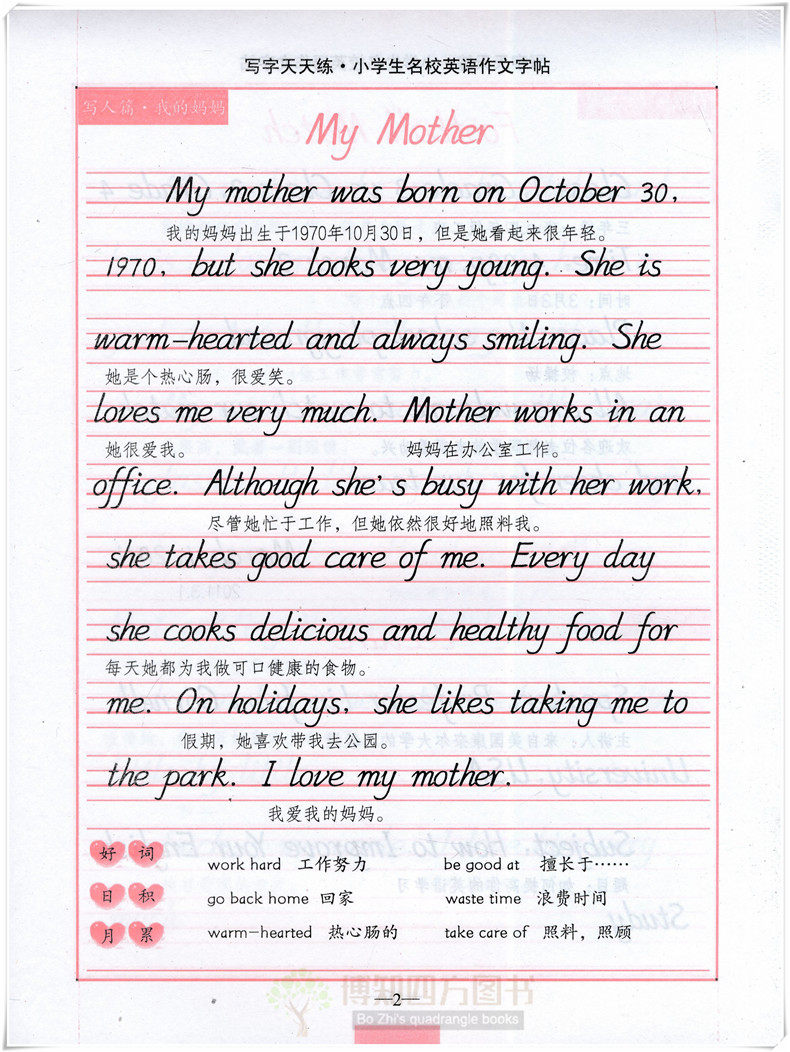 写字天天练·小学生名校英语作文字帖
写人篇·我的妈妈
My Mother
My mother was born on October 30,
我的妈妈出生于1970年10月30日，但是她看起来很年轻。
1970, but she looks very young. She is
warm-hearted and always smiling. She
她是个热心肠，很爱笑。
loves me very much. Mother works in an
她很爱我。 妈妈在办公室工作。
office. Although she's busy with her work,
尽管她忙于工作，但她依然很好地照料我。
she takes good care of me. Every day
she cooks delicious and healthy food for
每天她都为我做可口健康的食物。
me. On holidays, she likes taking me to
假期，她喜欢带我去公园。
the park. I love my mother.
我爱我的妈妈。
好词 work hard 工作努力 be good at 擅长于……
日积 go back home 回家 waste time 浪费时间
月累 warm-hearted 热心肠的 take care of 照料，照顾
博知四方图书
—2—
Bo Zhi's quadrangle books